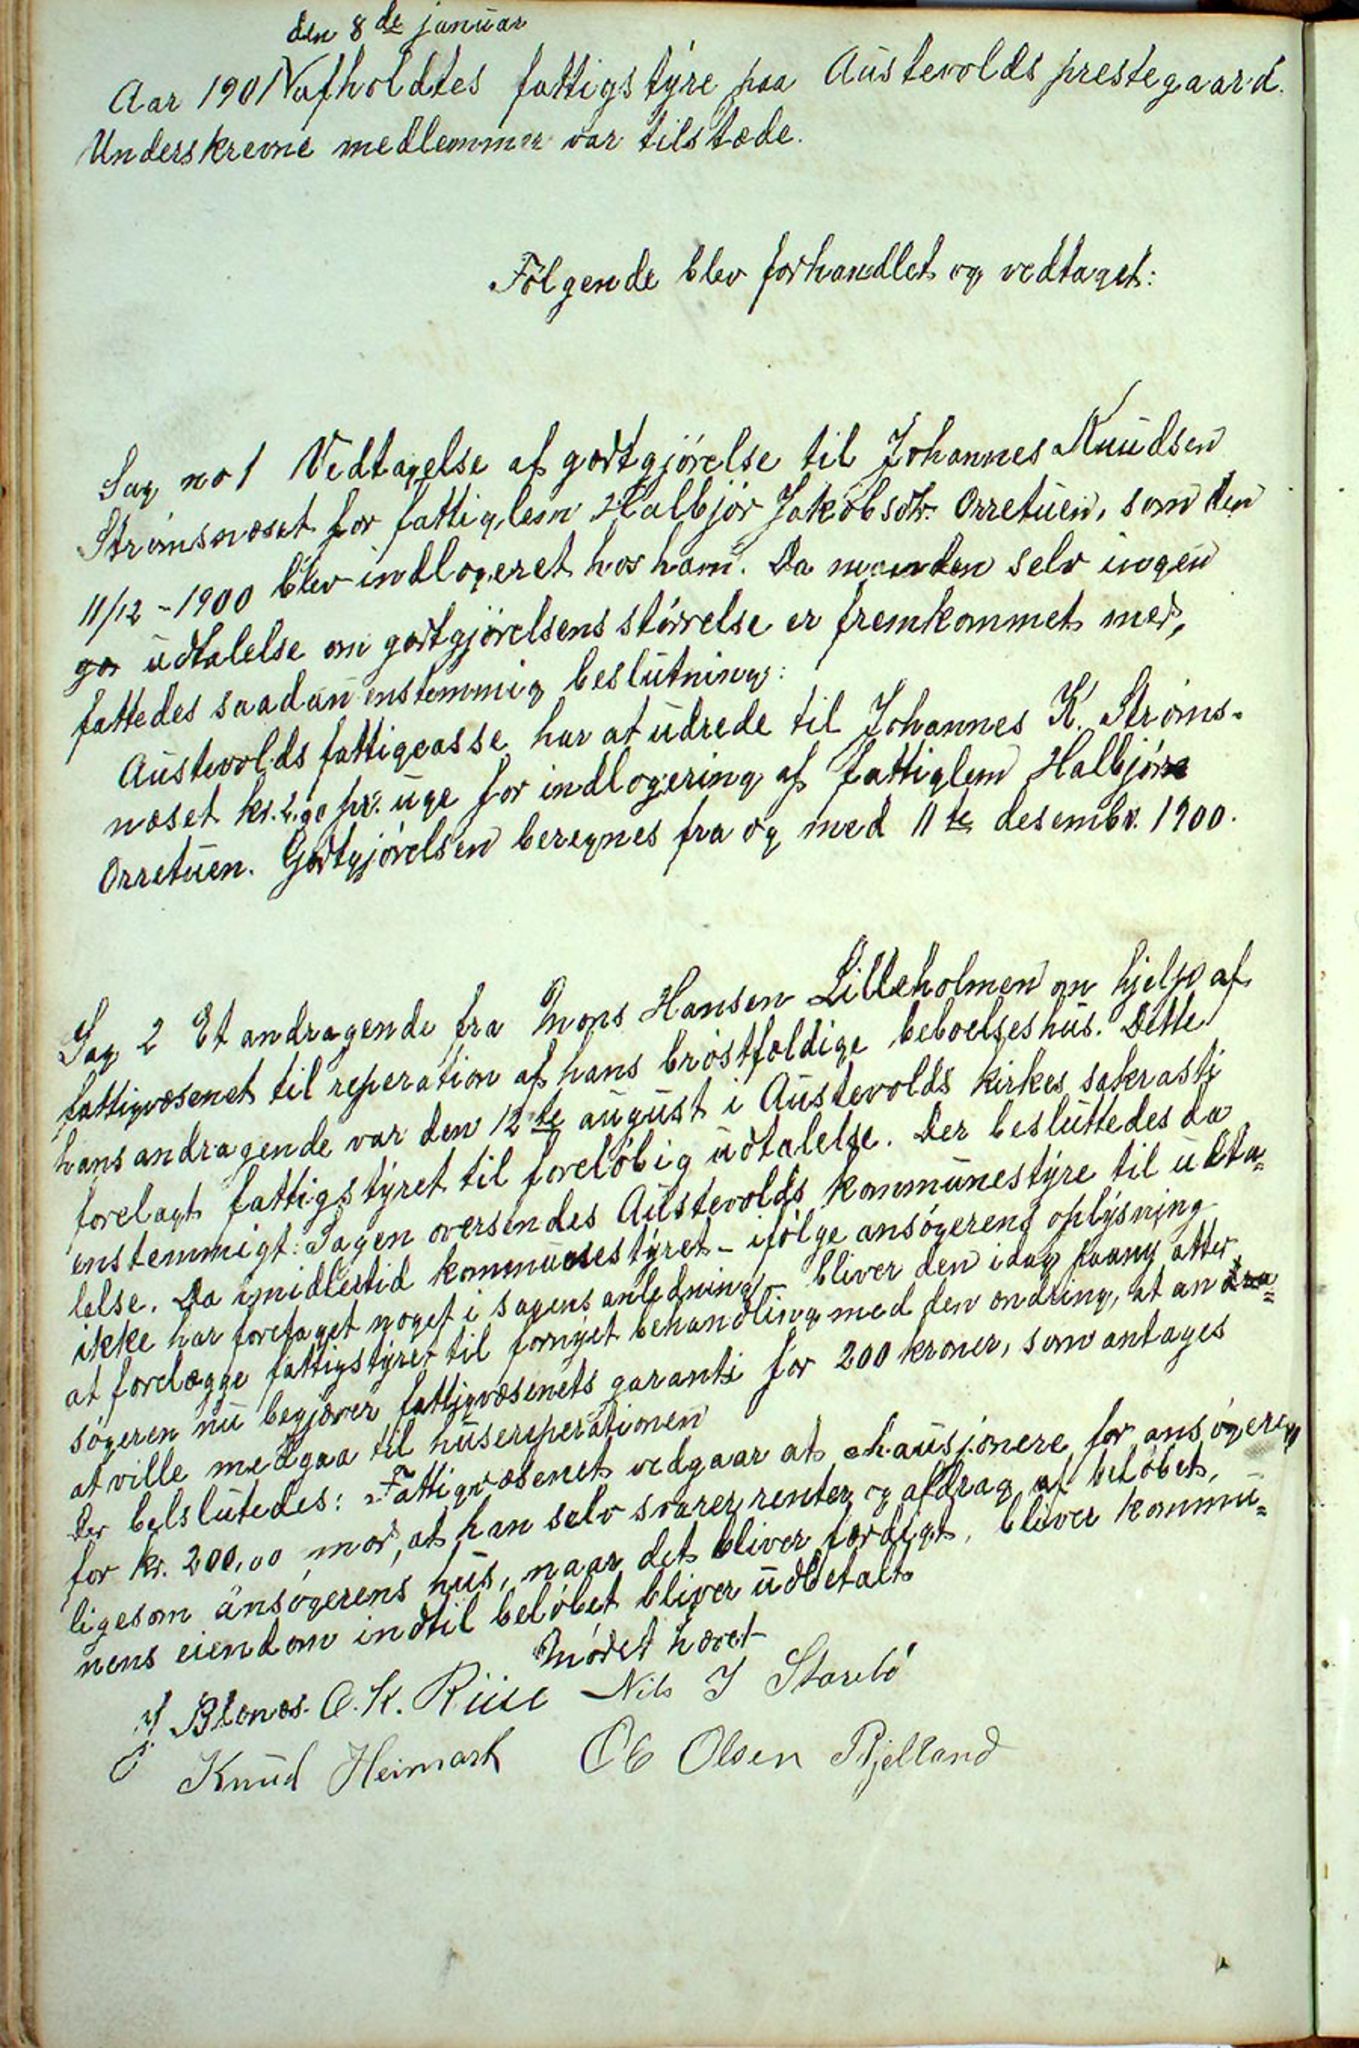 den 8de januar
Aar 1901 afholdtes fattigstyre paa Austevolds prestegaard.
Underskrevne medlemmer var tilstæde.
Følgende blev forhandlet og vedtaget:
Sag no 1 Vedtagelse af godtgjørelse til Johannes Knudsen
Strømsnæset for fattiglem Halbjør Jakobsdtr. Orretuen, som den
11/12 - 1900 blev indlogeret hos ham. Da manden selv ingen
udtalelse om godtgjørelsens størrelse er fremkommet med,
fattedes saadan enstemmig beslutning:
Austevolds fattigcasse har at udrede til Johannes K. Strøms-
næset kr. pr. uge for indlogering af fattiglem Halbjør
Orretuen. Godtgjørelsen beregnes fra og med 11te desembr. 1900.
Sag 2 Et andragende fra Mons Hansen Lilleholmen om hjelp af
fattigvæsenet til reperation af hans brøstfældige beboelseshus. Dette
hans andragende var den 12te august i Austevolds kirkes sakrasti
forelagt fattigstyret til foreløbig udtalelse. Der besluttedes da
enstemmigt: Sagen oversendes Austevolds kommunestyre til udta=
lelse. Da imidlertid kommunestyret - ifølge ansøgerens oplysning
ikke har foretaget noget i sagens anledning - bliver den idag paany atter
at forelægge fattigstyret til fornyet behandling med den ændring, at an
søgeren nu begjærer fattigvæsenets garanti for 200 kroner, som antages
at ville medgaa til husereperationen
Der belslutedes: Fattigvæsenet vedgaar at chausjonere for ansøgeren
for kr. 200,00 mod, at han selv svarer renter og afdrag af beløbet,
ligesom ansøgerens hus, naar det bliver færdigt, bliver kommu=
nens eiendom indtil beløbet bliver udbetalt
Mødet hævet
Blænæs. O. K. Riise Nils J Storebø
Knud Heimark Ole Olsen Bjelland